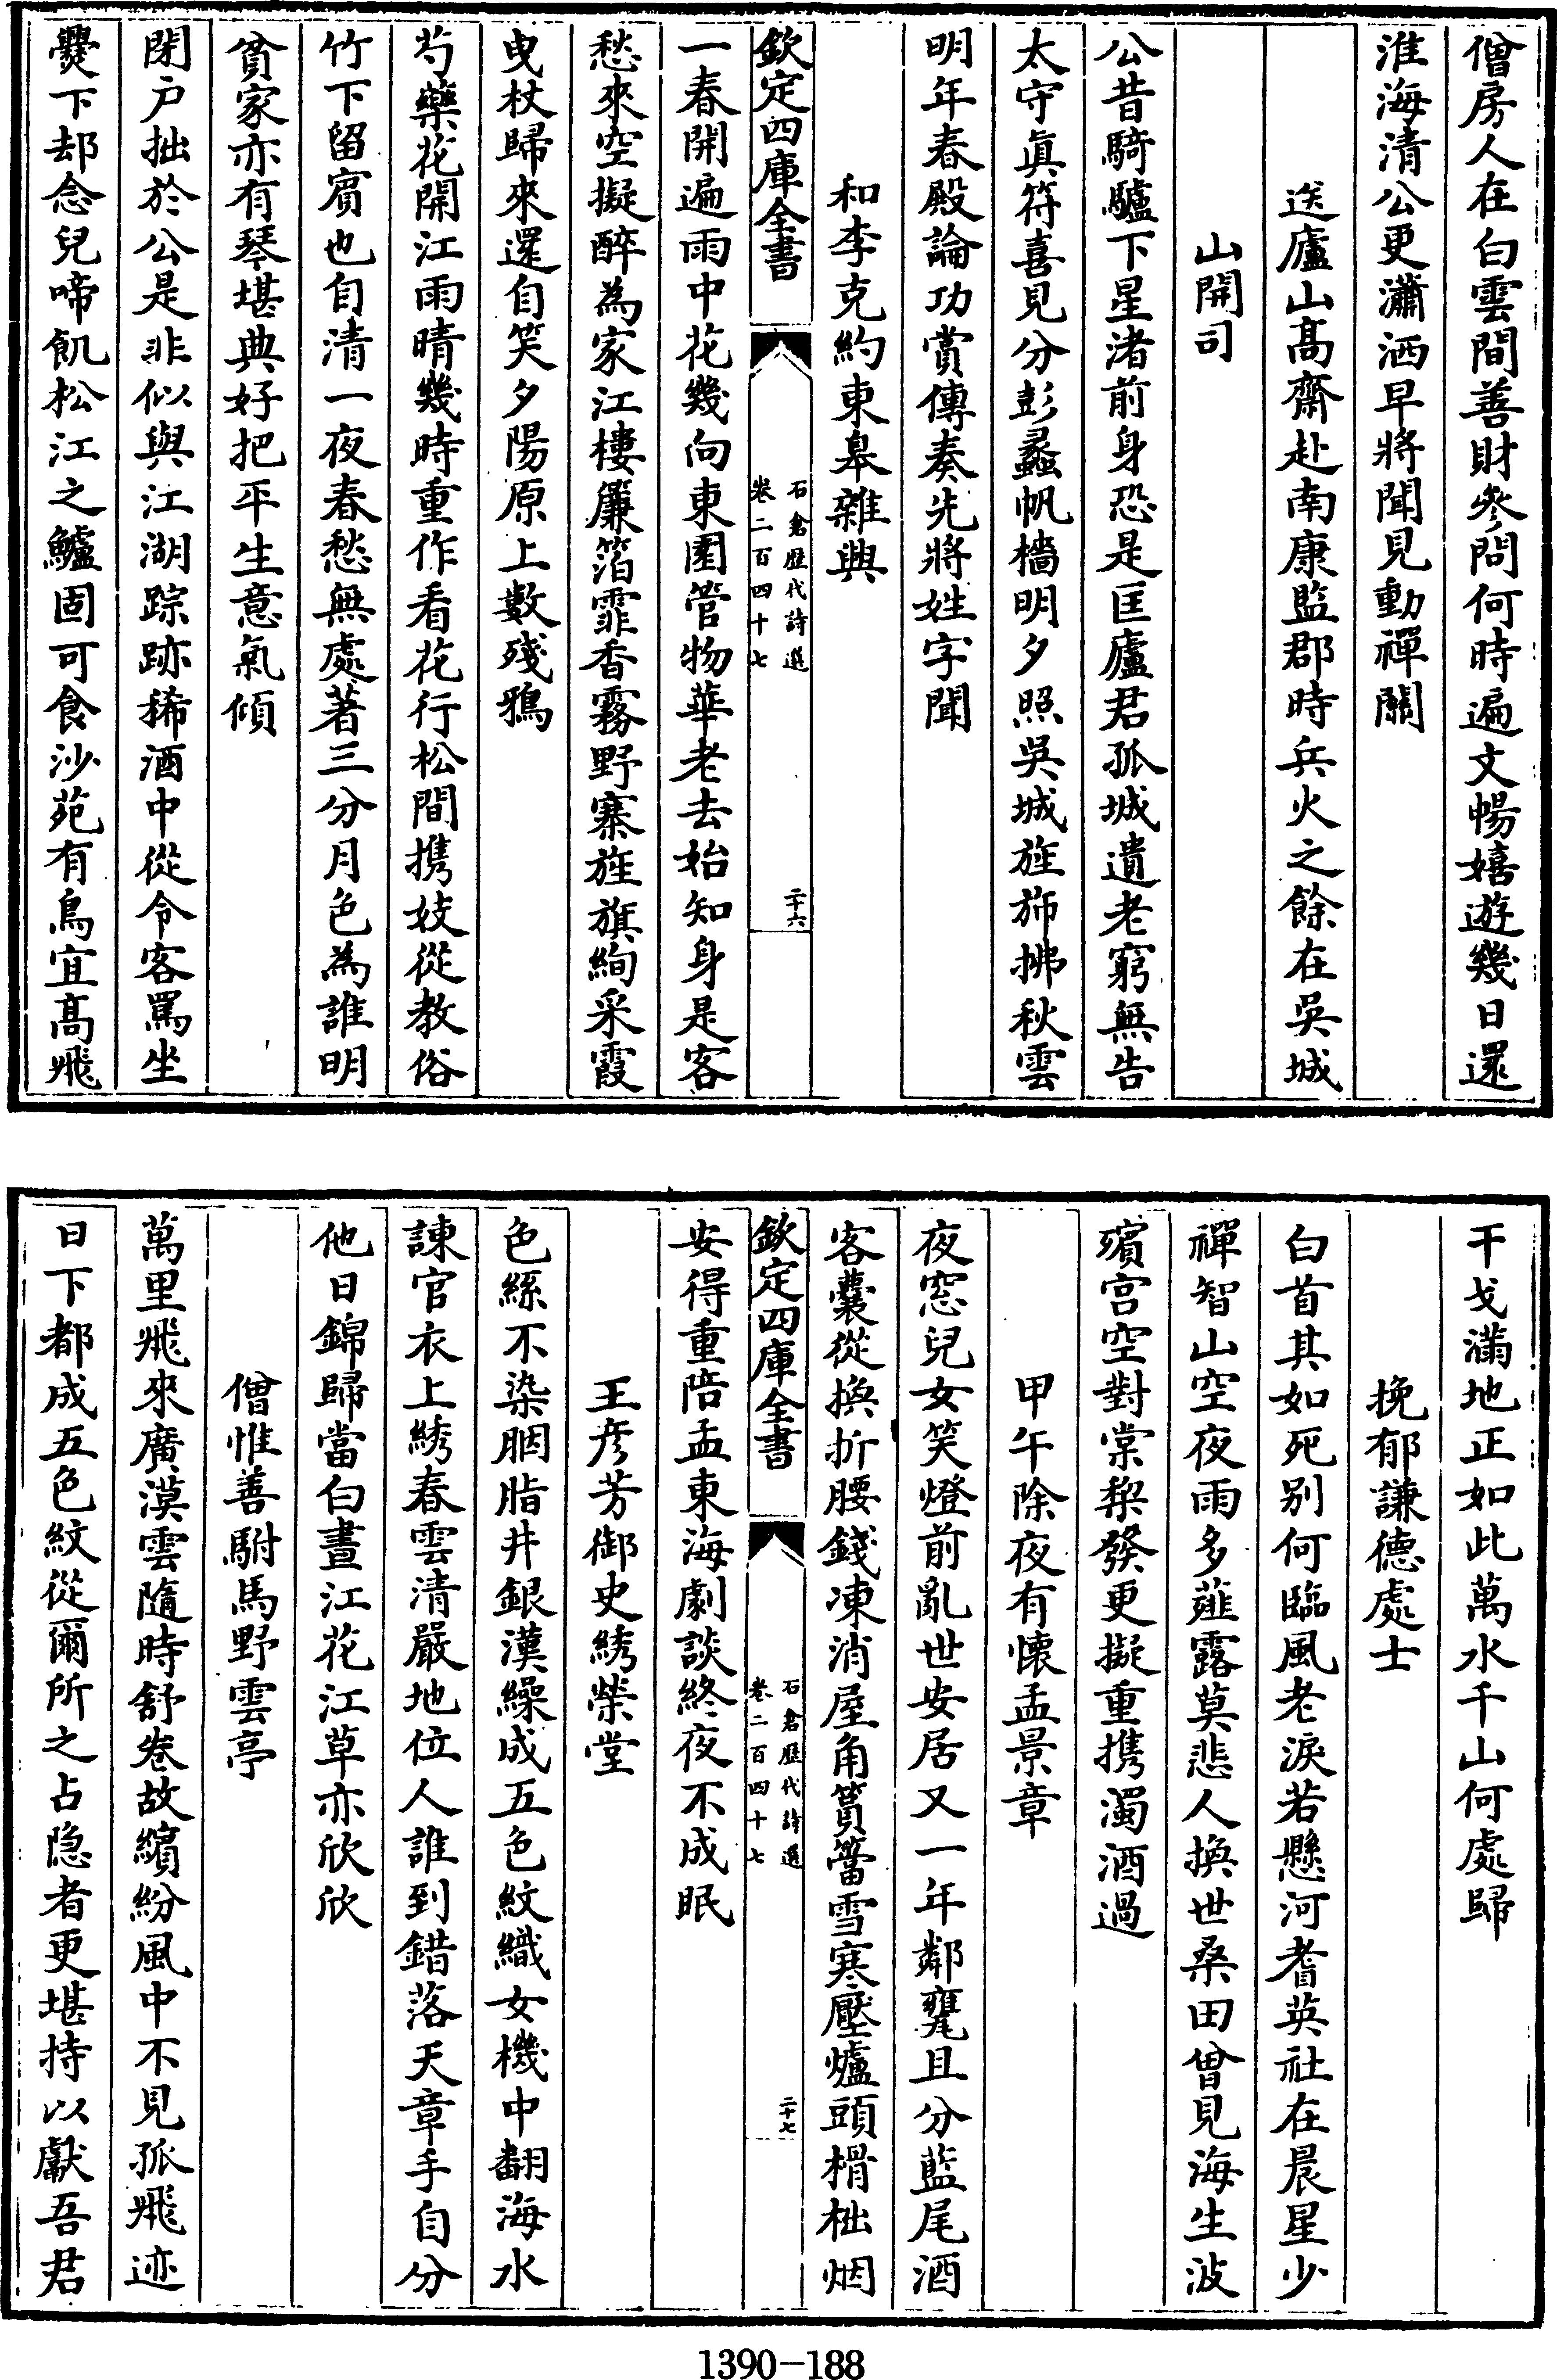 僧房人在白雲間善財參問何時遍文暢嬉遊幾日還
淮海清公更瀟洒早將聞見動禪關
送廬山高齋赴南康監郡時兵火之餘在吳城
山開司
公昔騎驢下星渚前身恐是匡廬君孤城遺老窮無告
太守真符喜見分彭蠡帆檣明夕照吳城旌斾拂秋雲
明年春殿論功賞傳奏先將姓字聞
和李克約東皋雜興
欽定四庫全書
石倉歷代詩選
卷二百四十七
二十六
一春開遍雨中花幾向東園管物華老去始知身是客
愁來空擬醉為家江樓簾箔霏香霧野寨旌旗絢采霞
曳杖歸來還自笑夕陽原上數殘鴉
芍藥花開江雨晴幾時重作看花行松間攜妓從教俗
竹下留賓也自清一夜春愁無處著三分月色為誰明
貧家亦有琴堪典好把平生意氣傾
閉戶拙於公是非似與江湖踪跡稀酒中從令客罵坐
爨下却念兒啼飢松江之鱸固可食沙苑有鳥宜高飛
干戈滿地正如此萬水千山何處歸
挽郁謙德處士
白首其如死別何臨風老淚若懸河耆英社在晨星少
禪智山空夜雨多薤露莫悲人換世桑田曾見海生波
殯宮空對棠棃發更擬重攜濁酒過
甲午除夜有懷孟景章
夜窓兒女笑燈前亂世安居又一年鄰甕且分藍尾酒
客囊從換折腰錢凍消屋角篔簹雪寒壓爐頭榾柮烟
欽定四庫全書
石倉歷代詩選
卷二百四十七
二十七
安得重陪孟東海劇談終夜不成眠
王彥芳御史綉榮堂
色絲不染胭脂井銀漢繰成五色紋織女機中翻海水
諫官衣上綉春雲清嚴地位人誰到錯落天章手自分
他日錦歸當白晝江花江草亦欣欣
僧惟善駙馬野雲亭
萬里飛來廣漠雲隨時舒卷故繽紛風中不見孤飛迹
日下都成五色紋從爾所之占隱者更堪持以獻吾君
1390-188